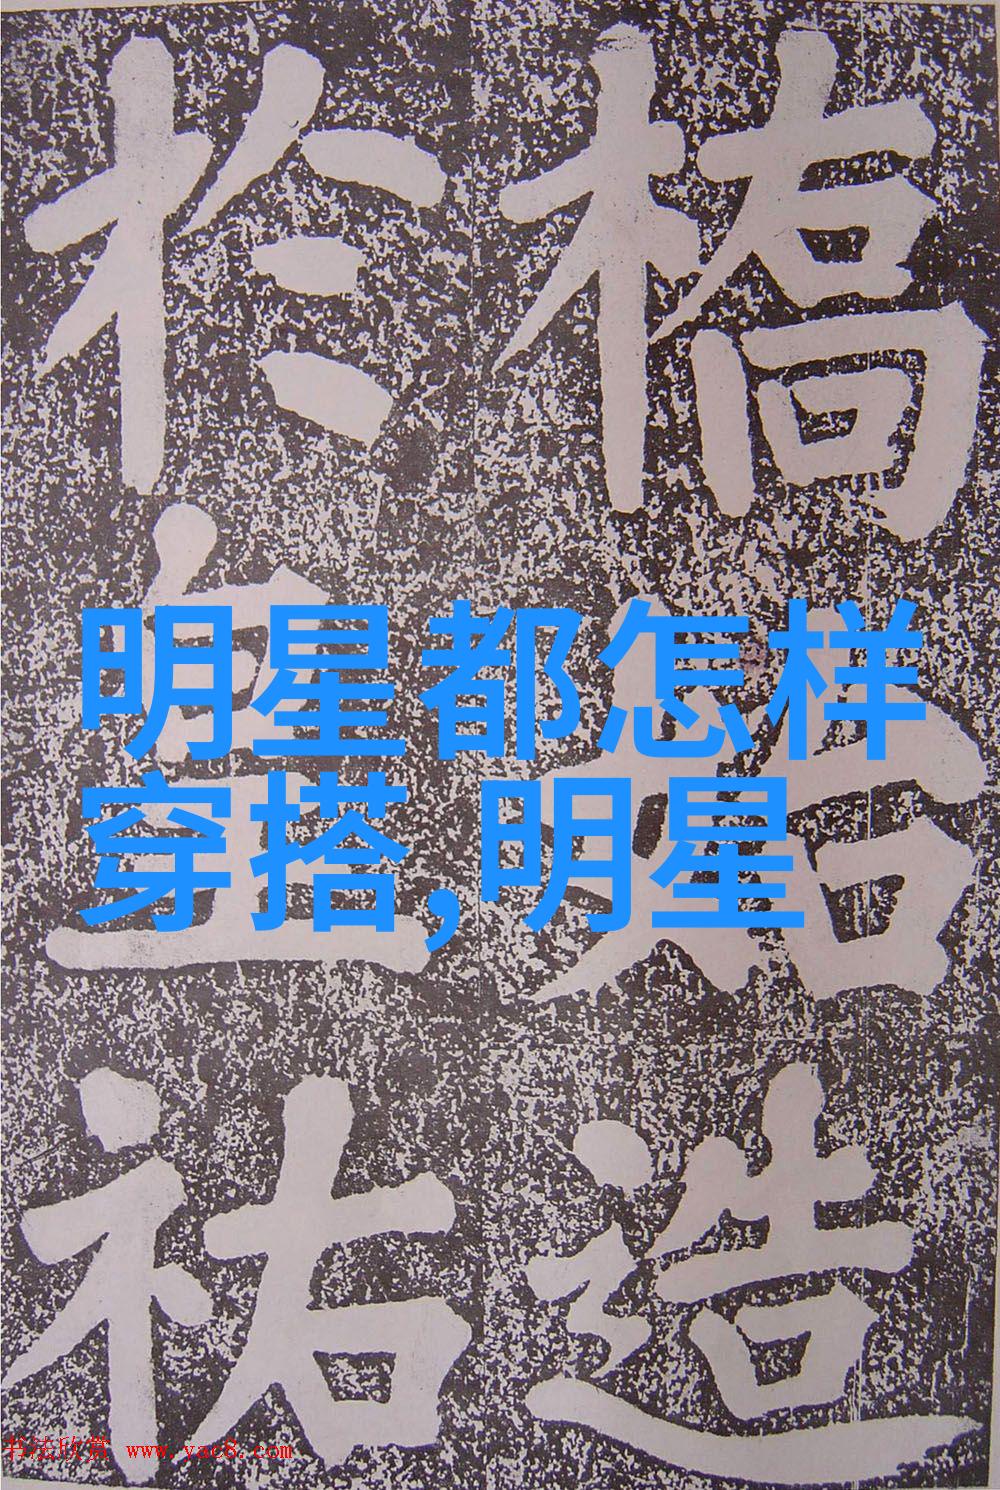 橋始造
於皇祐
明星都怎样
穿搭,明星
书法欣赏 www.yac8.com